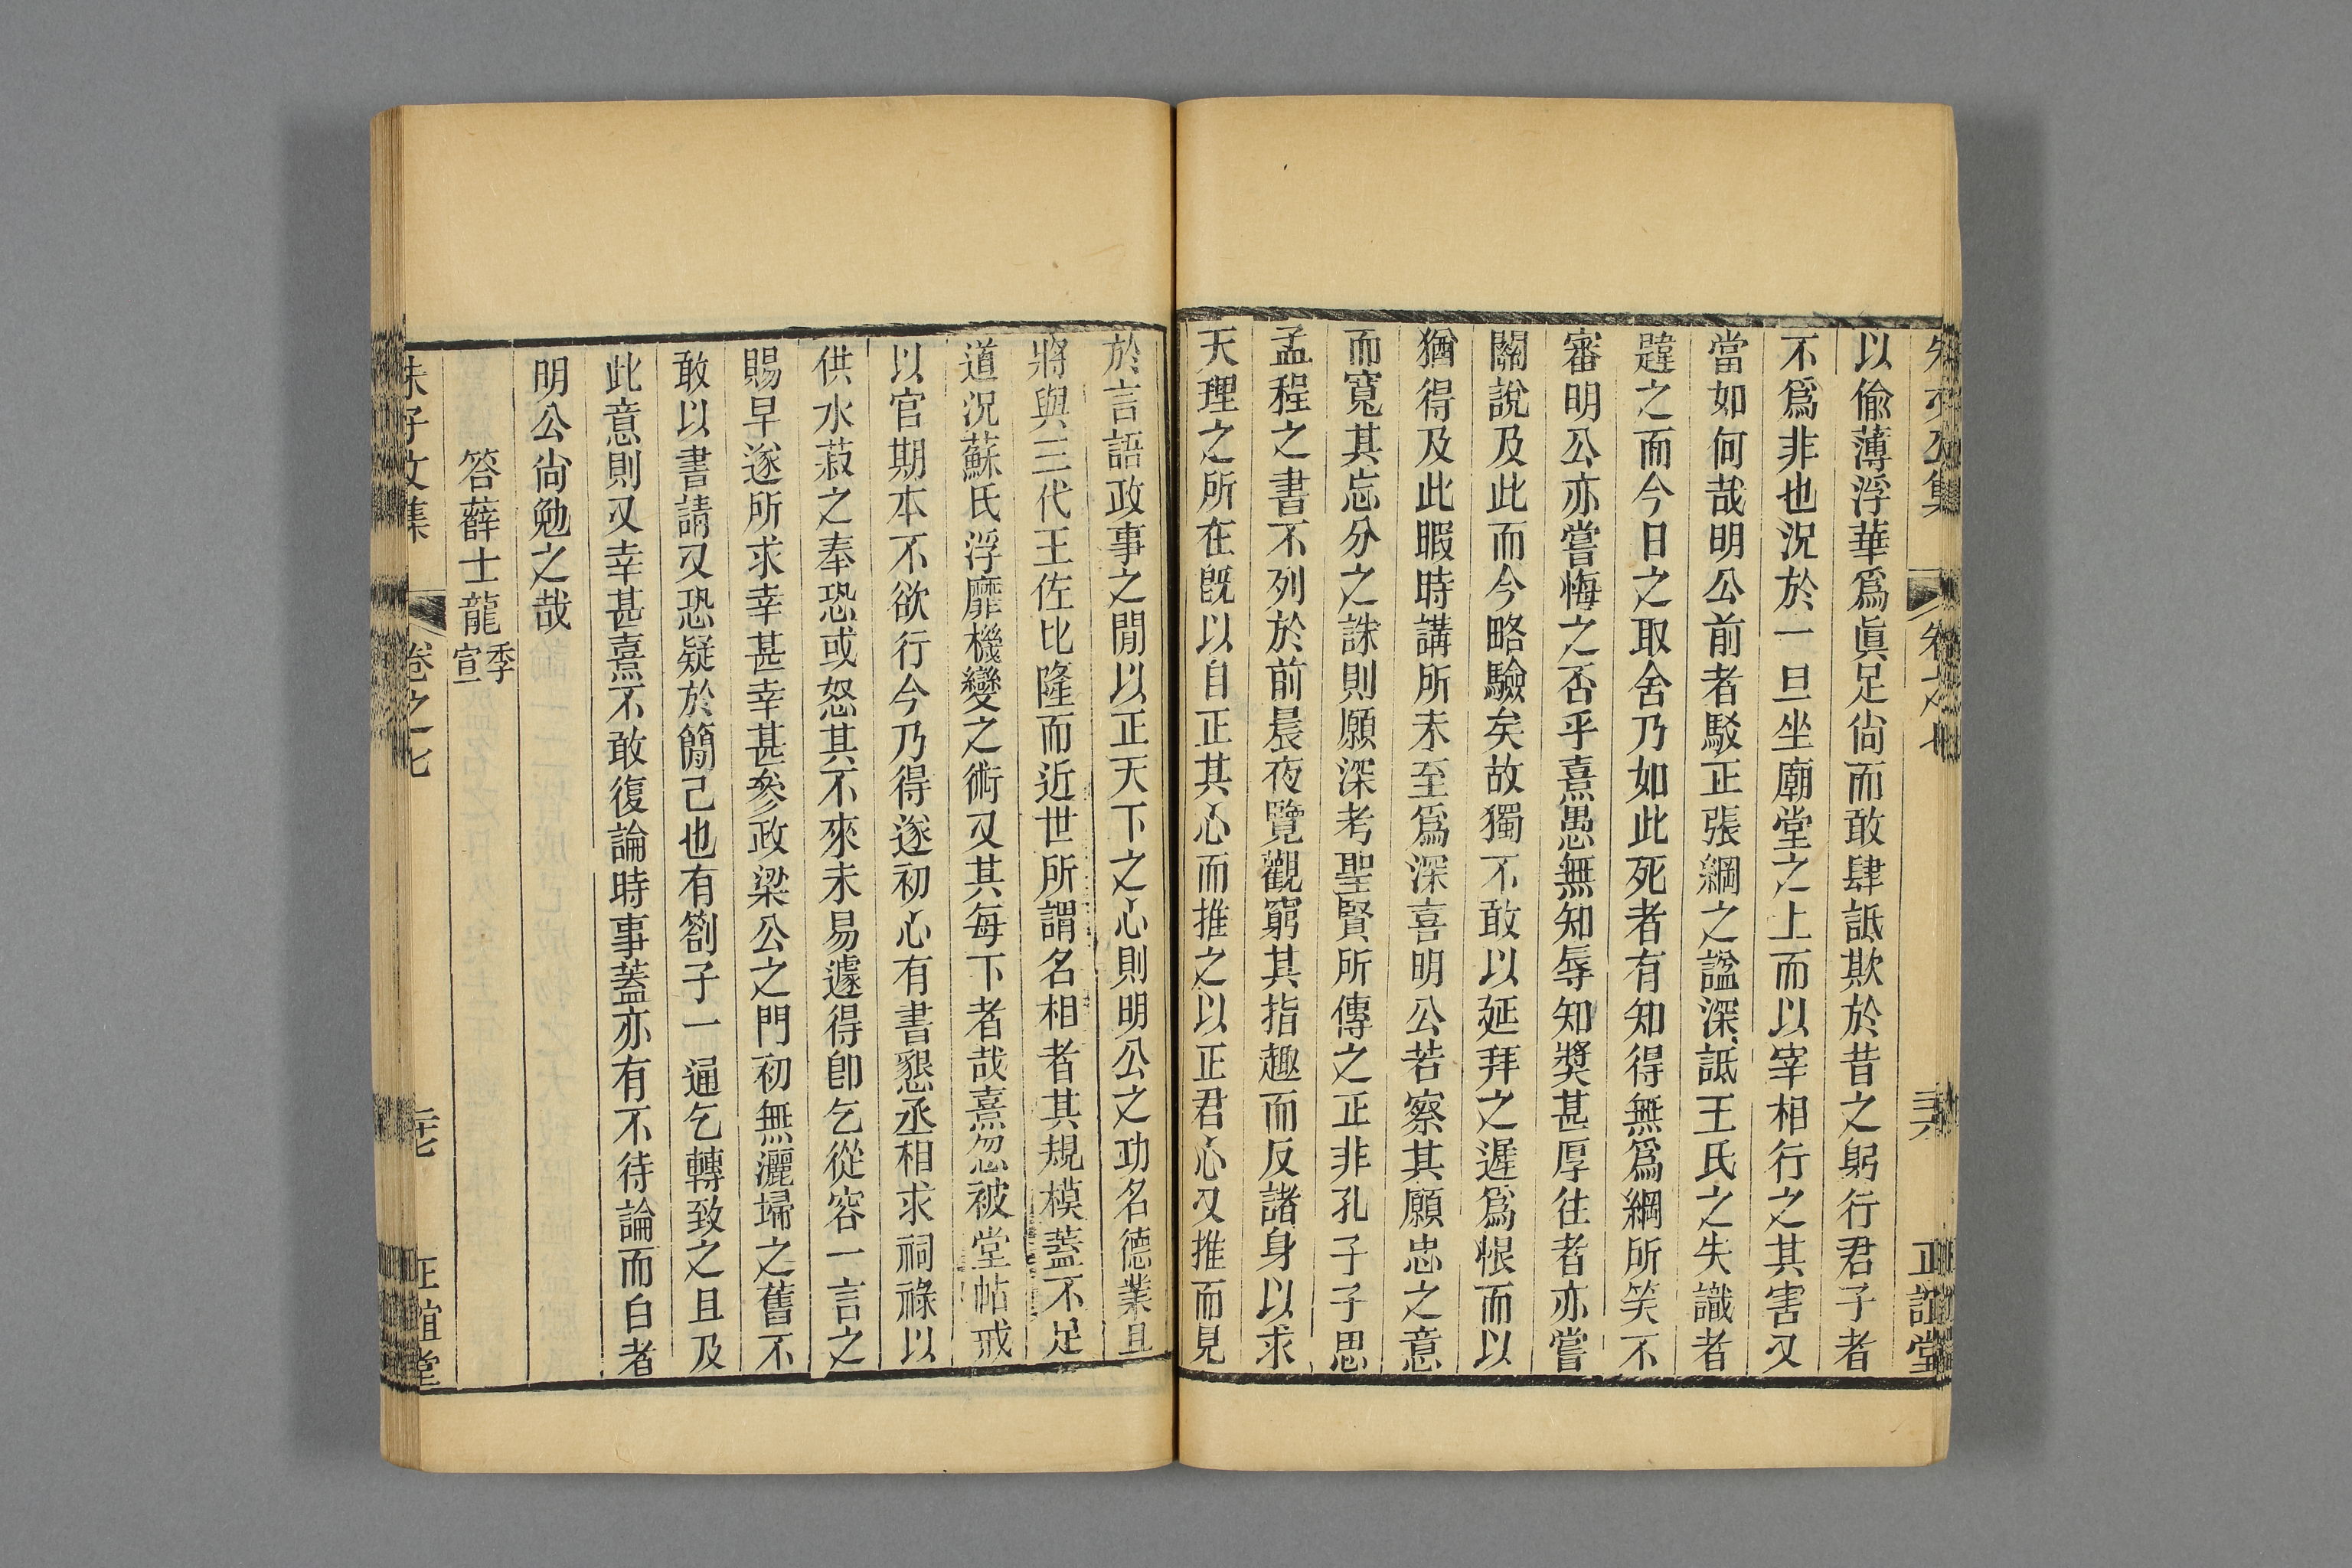 朱子文集　卷之七　三六　正誼堂
以偷薄浮華爲眞足尙而敢肆詆欺於昔之躬行君子者
不爲非也況於一旦坐廟堂之上而以宰相行之其害又
當如何哉明公前者駁正張綱之諡深詆王氏之失識者
韙之而今日之取舍乃如此死者有知得無爲綱所笑不
審明公亦嘗悔之否乎熹愚無知辱知奬甚厚往者亦嘗
關說及此而今略驗矣故獨不敢以延拜之遲爲恨而以
猶得及此暇時講所未至爲深喜明公若察其願忠之意
而寬其忘分之誅則願深考聖賢所傳之正非孔子子思
孟程之書不列於前晨夜覽觀窮其指趣而反諸身以求
天理之所在旣以自正其心而推之以正君心又推而見
於言語政事之閒以正天下之心則明公之功名德業且
將與三代王佐比隆而近世所謂名相者其規模蓋不足
道況蘇氏浮靡機變之術又其每下者哉熹忽被堂帖戒
以官期本不欲行今乃得遂初心有書懇丞相求祠祿以
供水菽之奉恐或怒其不來未易遽得卽乞從容一言之
賜早遂所求幸甚幸甚參政梁公之門初無灑埽之舊不
敢以書請又恐疑於簡己也有劄子一通乞轉致之且及
此意則又幸甚熹不敢復論時事蓋亦有不待論而白者
明公尙勉之哉
答薛士龍季宣
朱子文集　卷之七　三七　正誼堂